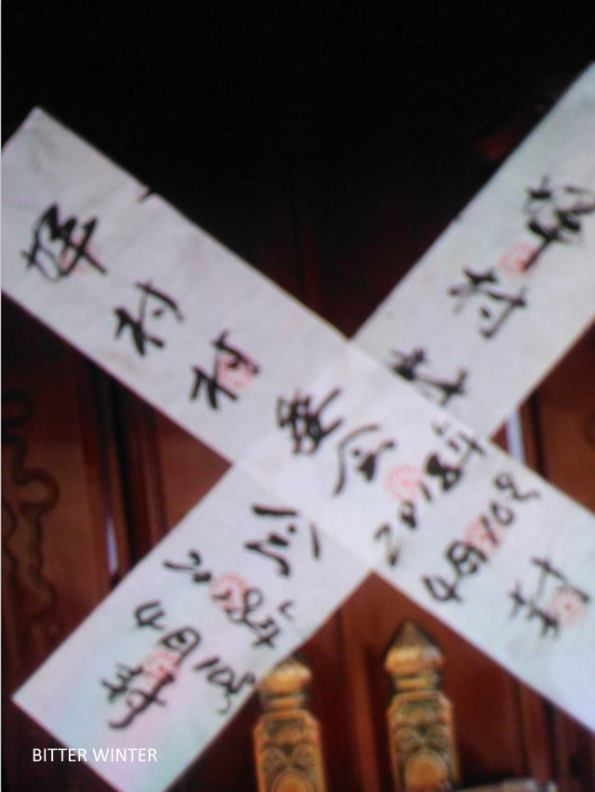 村村委会
2018年
4月10日
封
村村
会
2018年
4月10日
封
BITTER WINTER